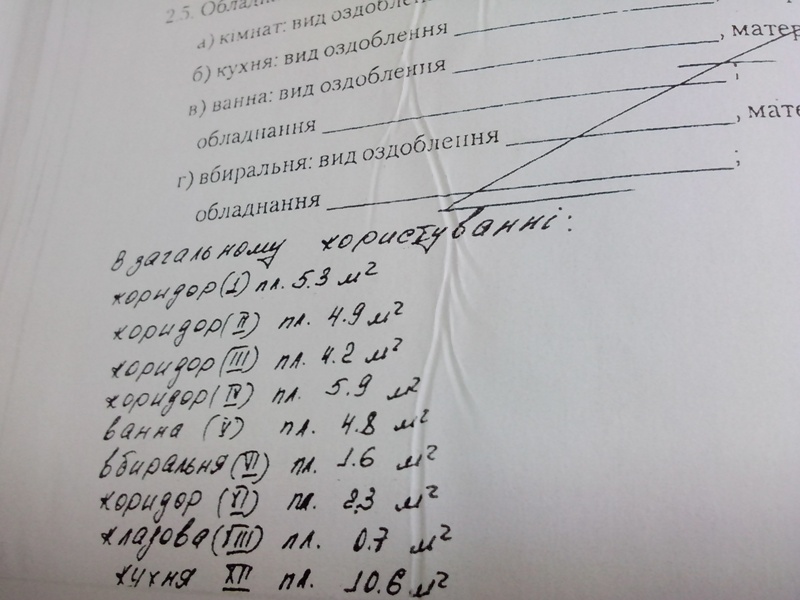 2.5. Обладн
а) кімнат: вид оздоблен
б) кухня: вид оздоблення
в) ванна: вид оздоблення , матер
обладнання ;
г) вбиральня: вид оздоблення , мате
обладнання ;
в загальному користуванні:
коридор (I) пл. 5.3 м²
коридор (II) пл. 4.9 м²
коридор (III) пл. 4.2 м²
коридор (IV) пл. 5.9 м²
ванна (V) пл. 4.8 м²
вбиральня (VI) пл. 1.6 м²
коридор (VI) пл. 2.3 м²
кладова (VIII) пл. 0.7 м²
кухня XII пл. 10.6 м²